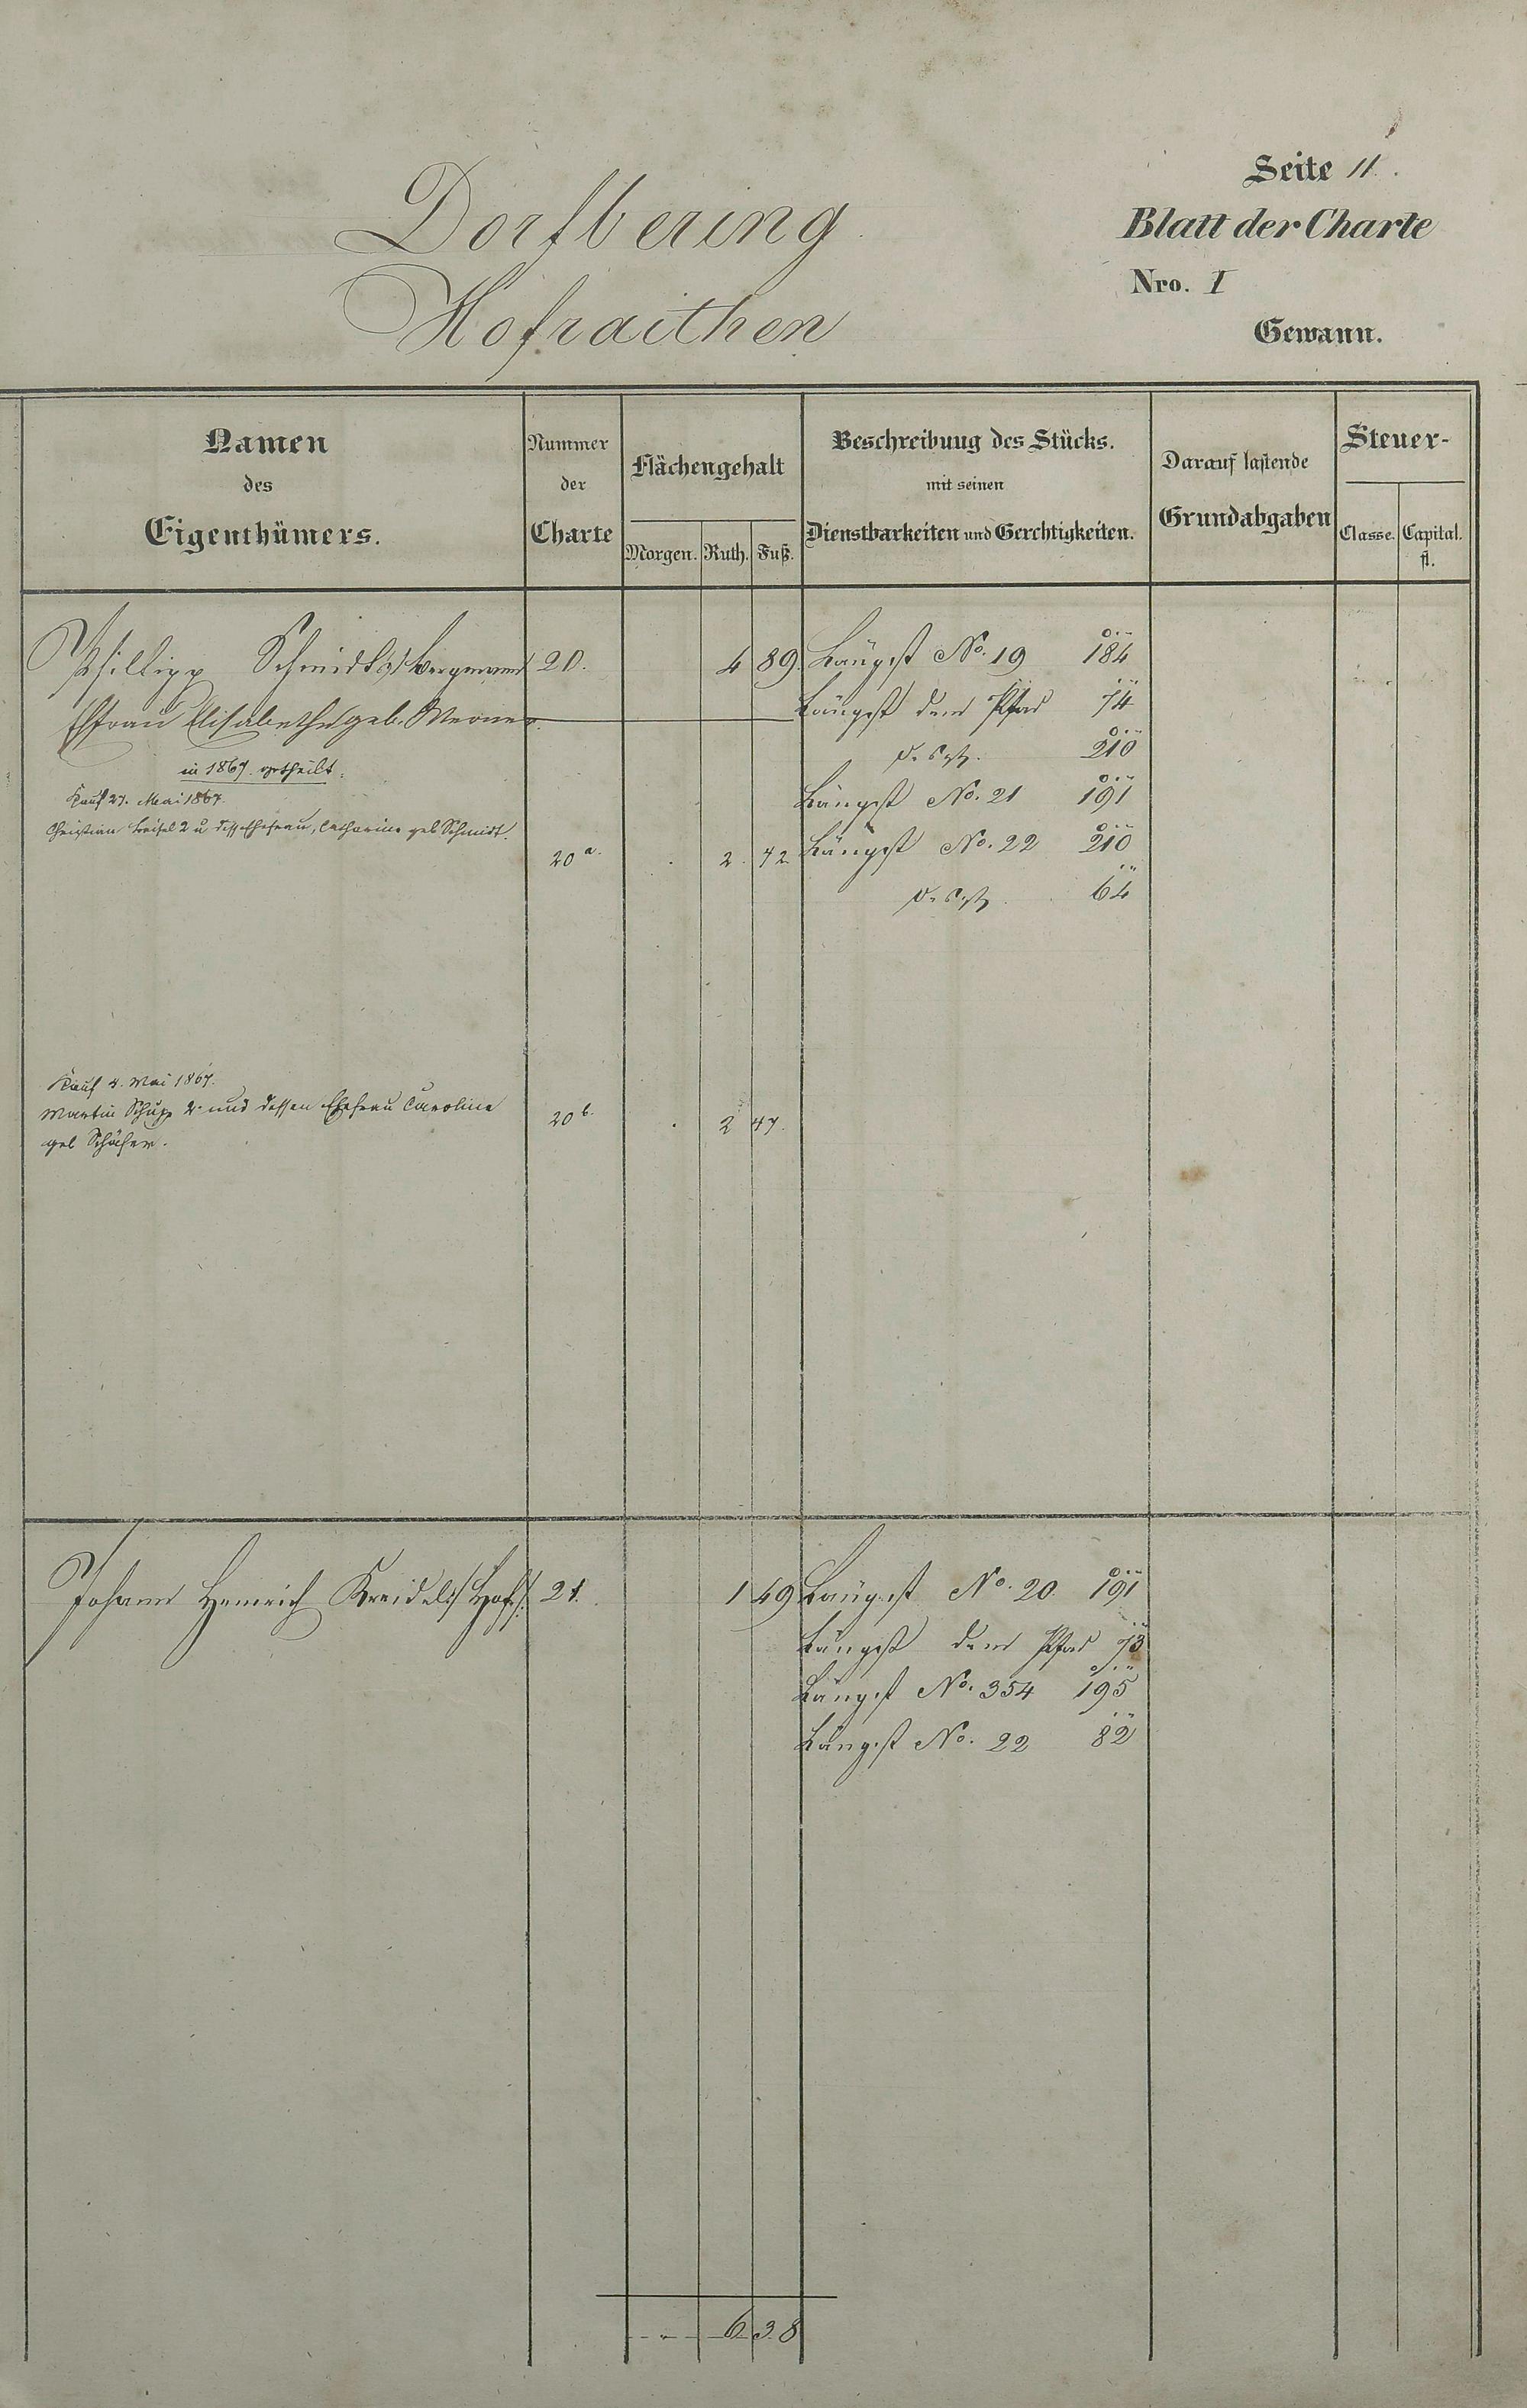 Seite 11.
Dorfbering
Blatt der Charte
Nro. I
Hofraithen
Gewann.
Namen des Eigenthümers.
Nummer der Charte
Flächengehalt
Morgen. Ruth. Fuß.
Beschreibung des Stücks. mit seinen Dienstbarkeiten und Gerchtigkeiten.
Darauf lastende Grundabgaben
Steuer-
Classe. Capital. fl.
Phillipp Schmidt Bergmann 20. 4 89. Längst No. 19 184
Ehfrau Elisabetha geb. Werner Längst dem Pfad 74
in 1867 getheilt. 210
Kauf 27. Mai 1867. Längst No. 21 191
Christian 2 u dess Ehefrau, Catharine geb Schmidt.
20 a. 2. 42. Längst No. 22 210
64
Kauf 4. Mai 1867.
Martin Schupp 2r und dessen Ehefrau Caroline
20 b. 2 47.
geb Schäfer.
Johann Heinrich Kreidel 21. 1 49 Längst No. 20. 191
Längst dem Pfad 73
Längst No. 354 195
Längst No. 22 82
6 38